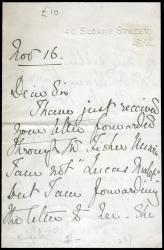 £10
40 SLOANE STREET,
S.W.
Nov 16.
Dear Sir
I have just received
your letter forwarded
through Mr Fisher Unwin
I am not "Lucas Malet"
but I am forwarding
the letter to her. She